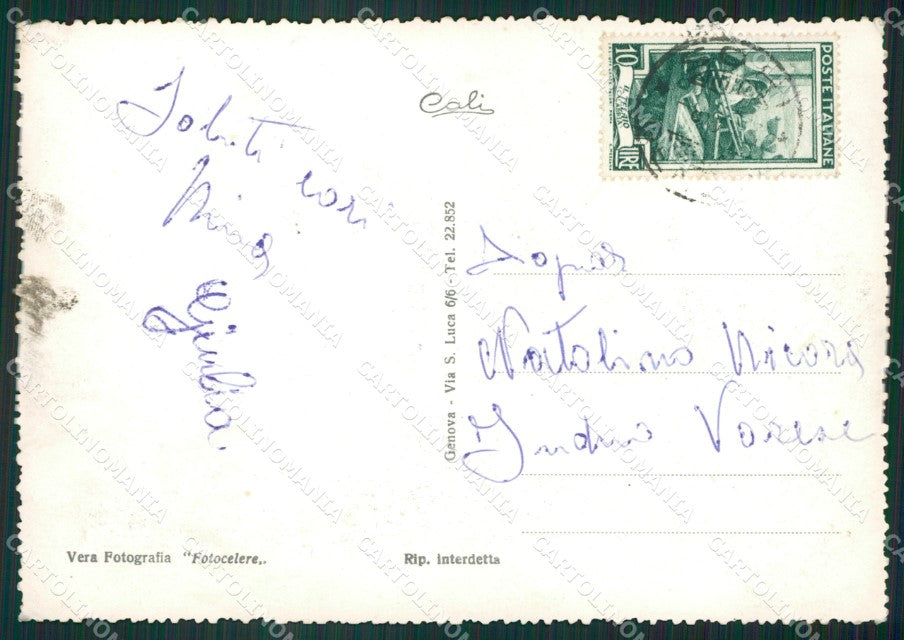 Saluti cari
Nina
Giulia.
Cali
10
LIRE
POSTE ITALIANE
Genova - Via S. Luca 6/6 - Tel. 22.852
Natalino Nicora
Induno Varese
Vera Fotografia "Fotocelere„.
Rip. interdetta
CARTOLINOMANIA